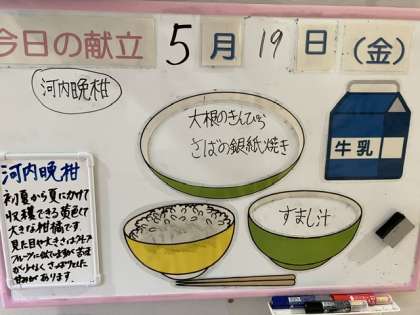 今日の献立 5月19日(金)
河内晩柑
大根のきんぴら
さばの銀紙焼き
牛乳
すまし汁
河内晩柑
初夏から夏にかけて
収穫できる黄色くて
大きな柑橘です。
見た目や大きさはグレープ
フルーツに似てますが苦味
が少なく、さっぱりとした
甘みがあります。